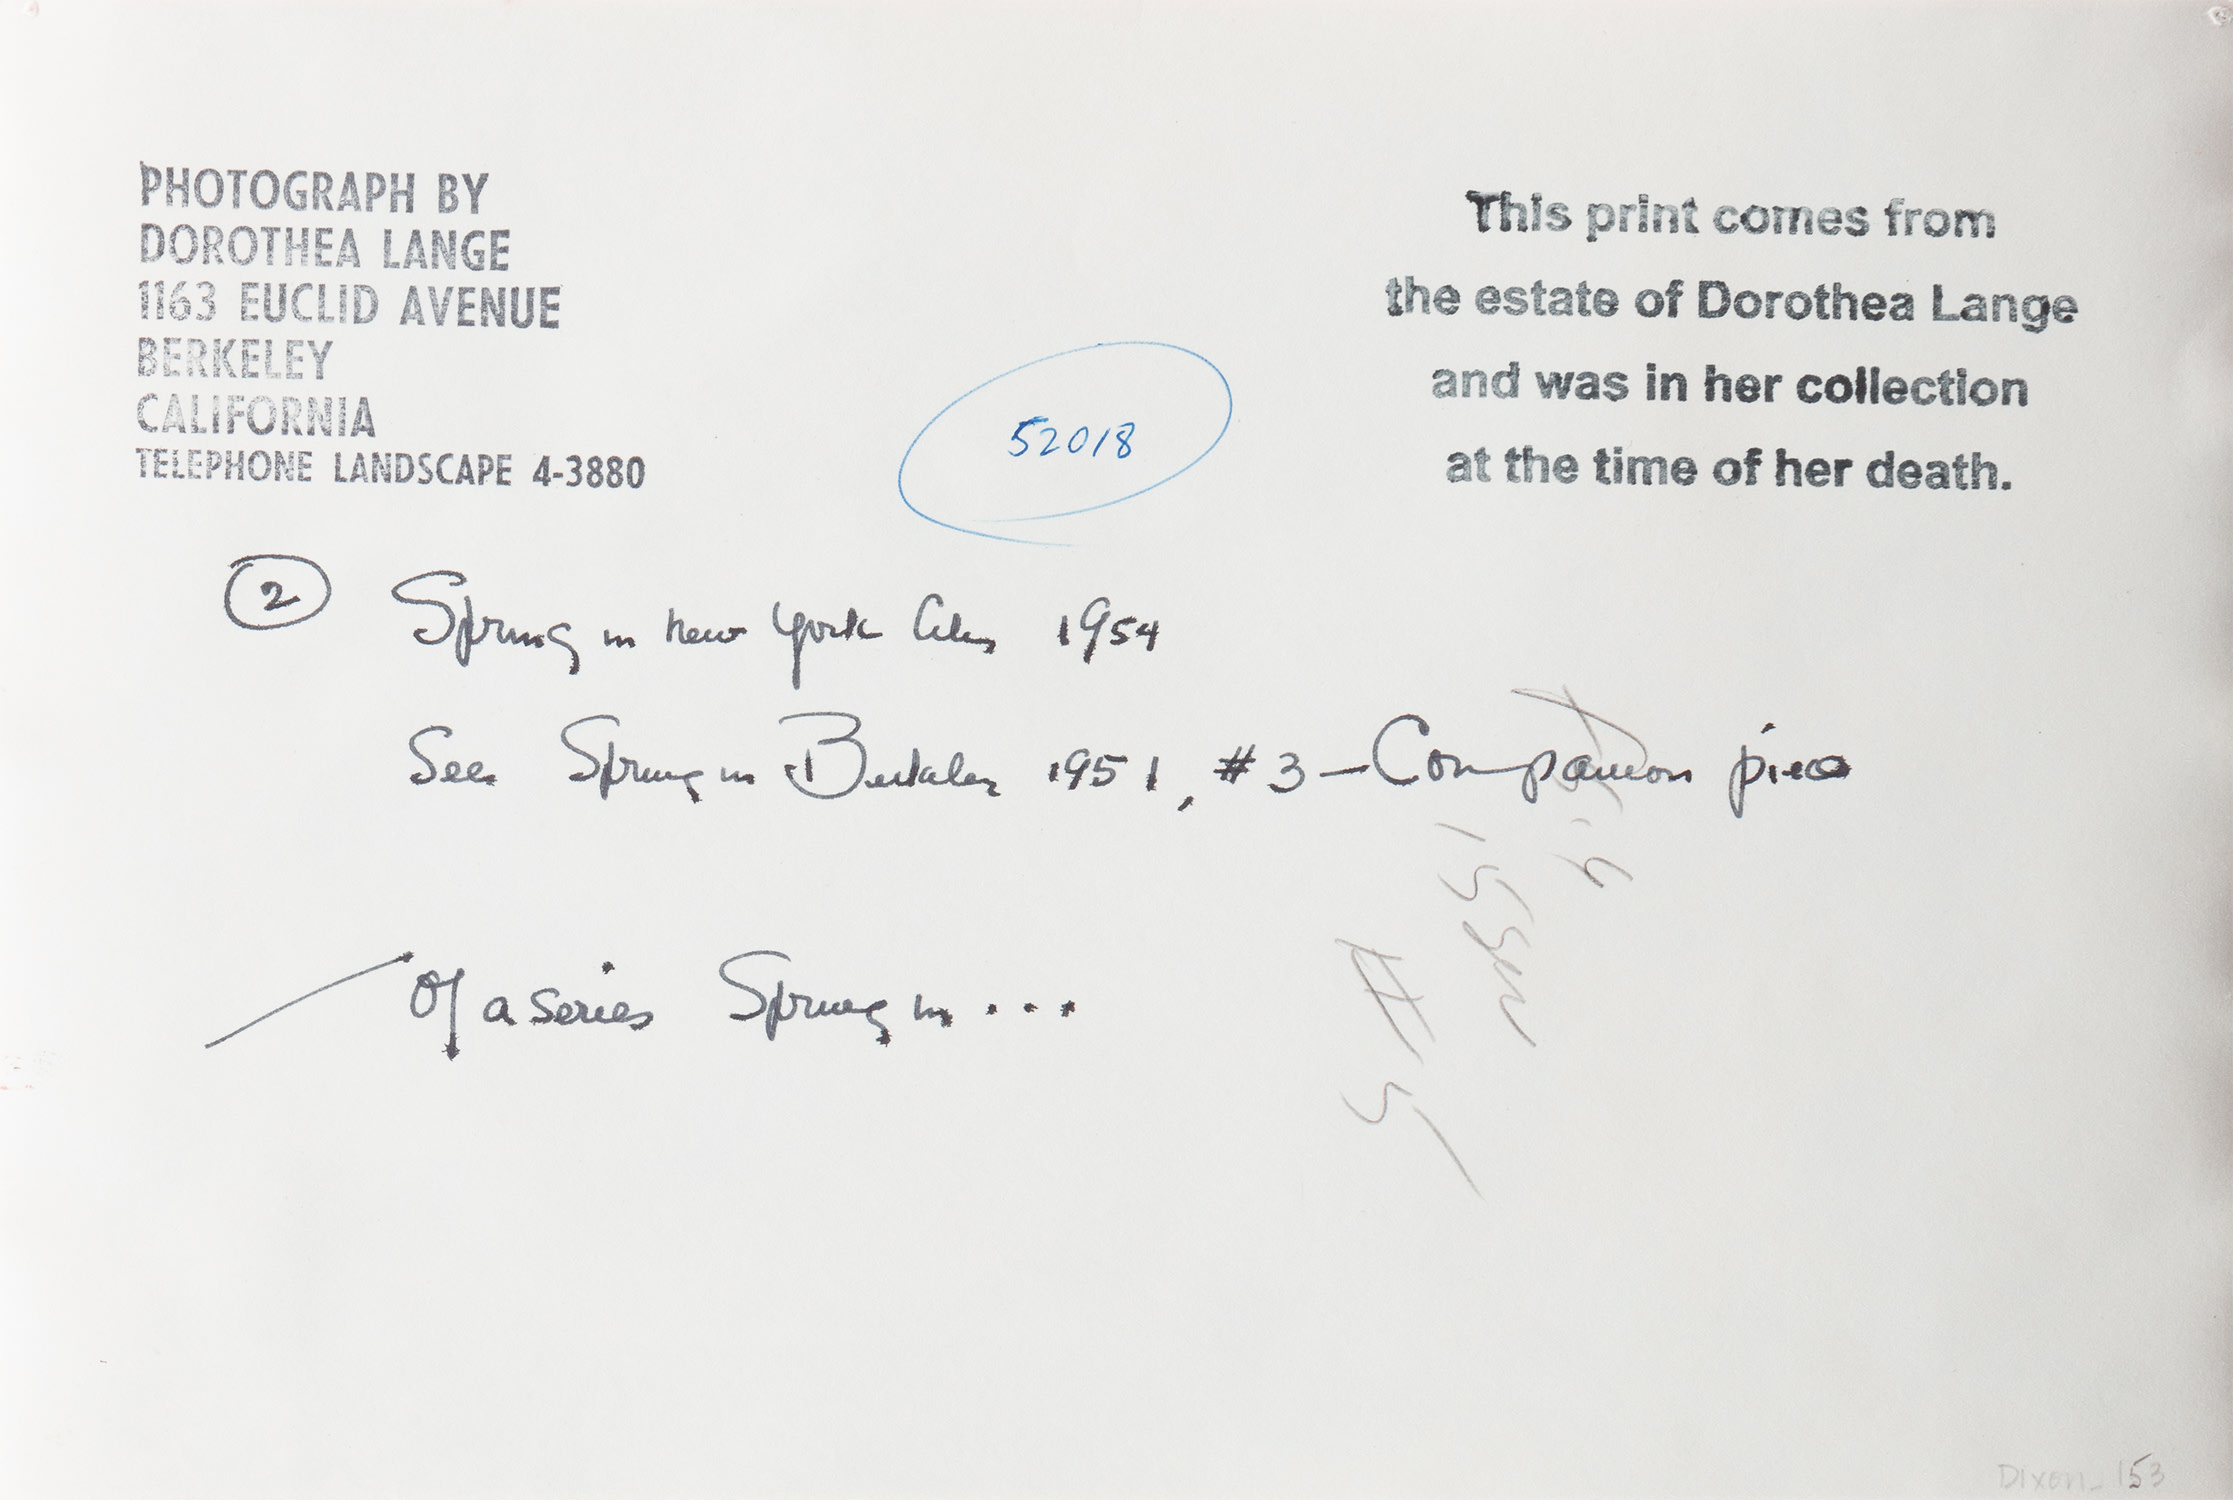 PHOTOGRAPH BY
DOROTHEA LANGE
1163 EUCLID AVENUE
BERKELEY
CALIFORNIA
TELEPHONE LANDSCAPE 4-3880
This print comes from
the estate of Dorothea Lange
and was in her collection
at the time of her death.
52018
2 Spring in New York City 1954
See Spring in Berkeley 1951, #3 — Companion piece
Of a series Spring in...
Dixon 153